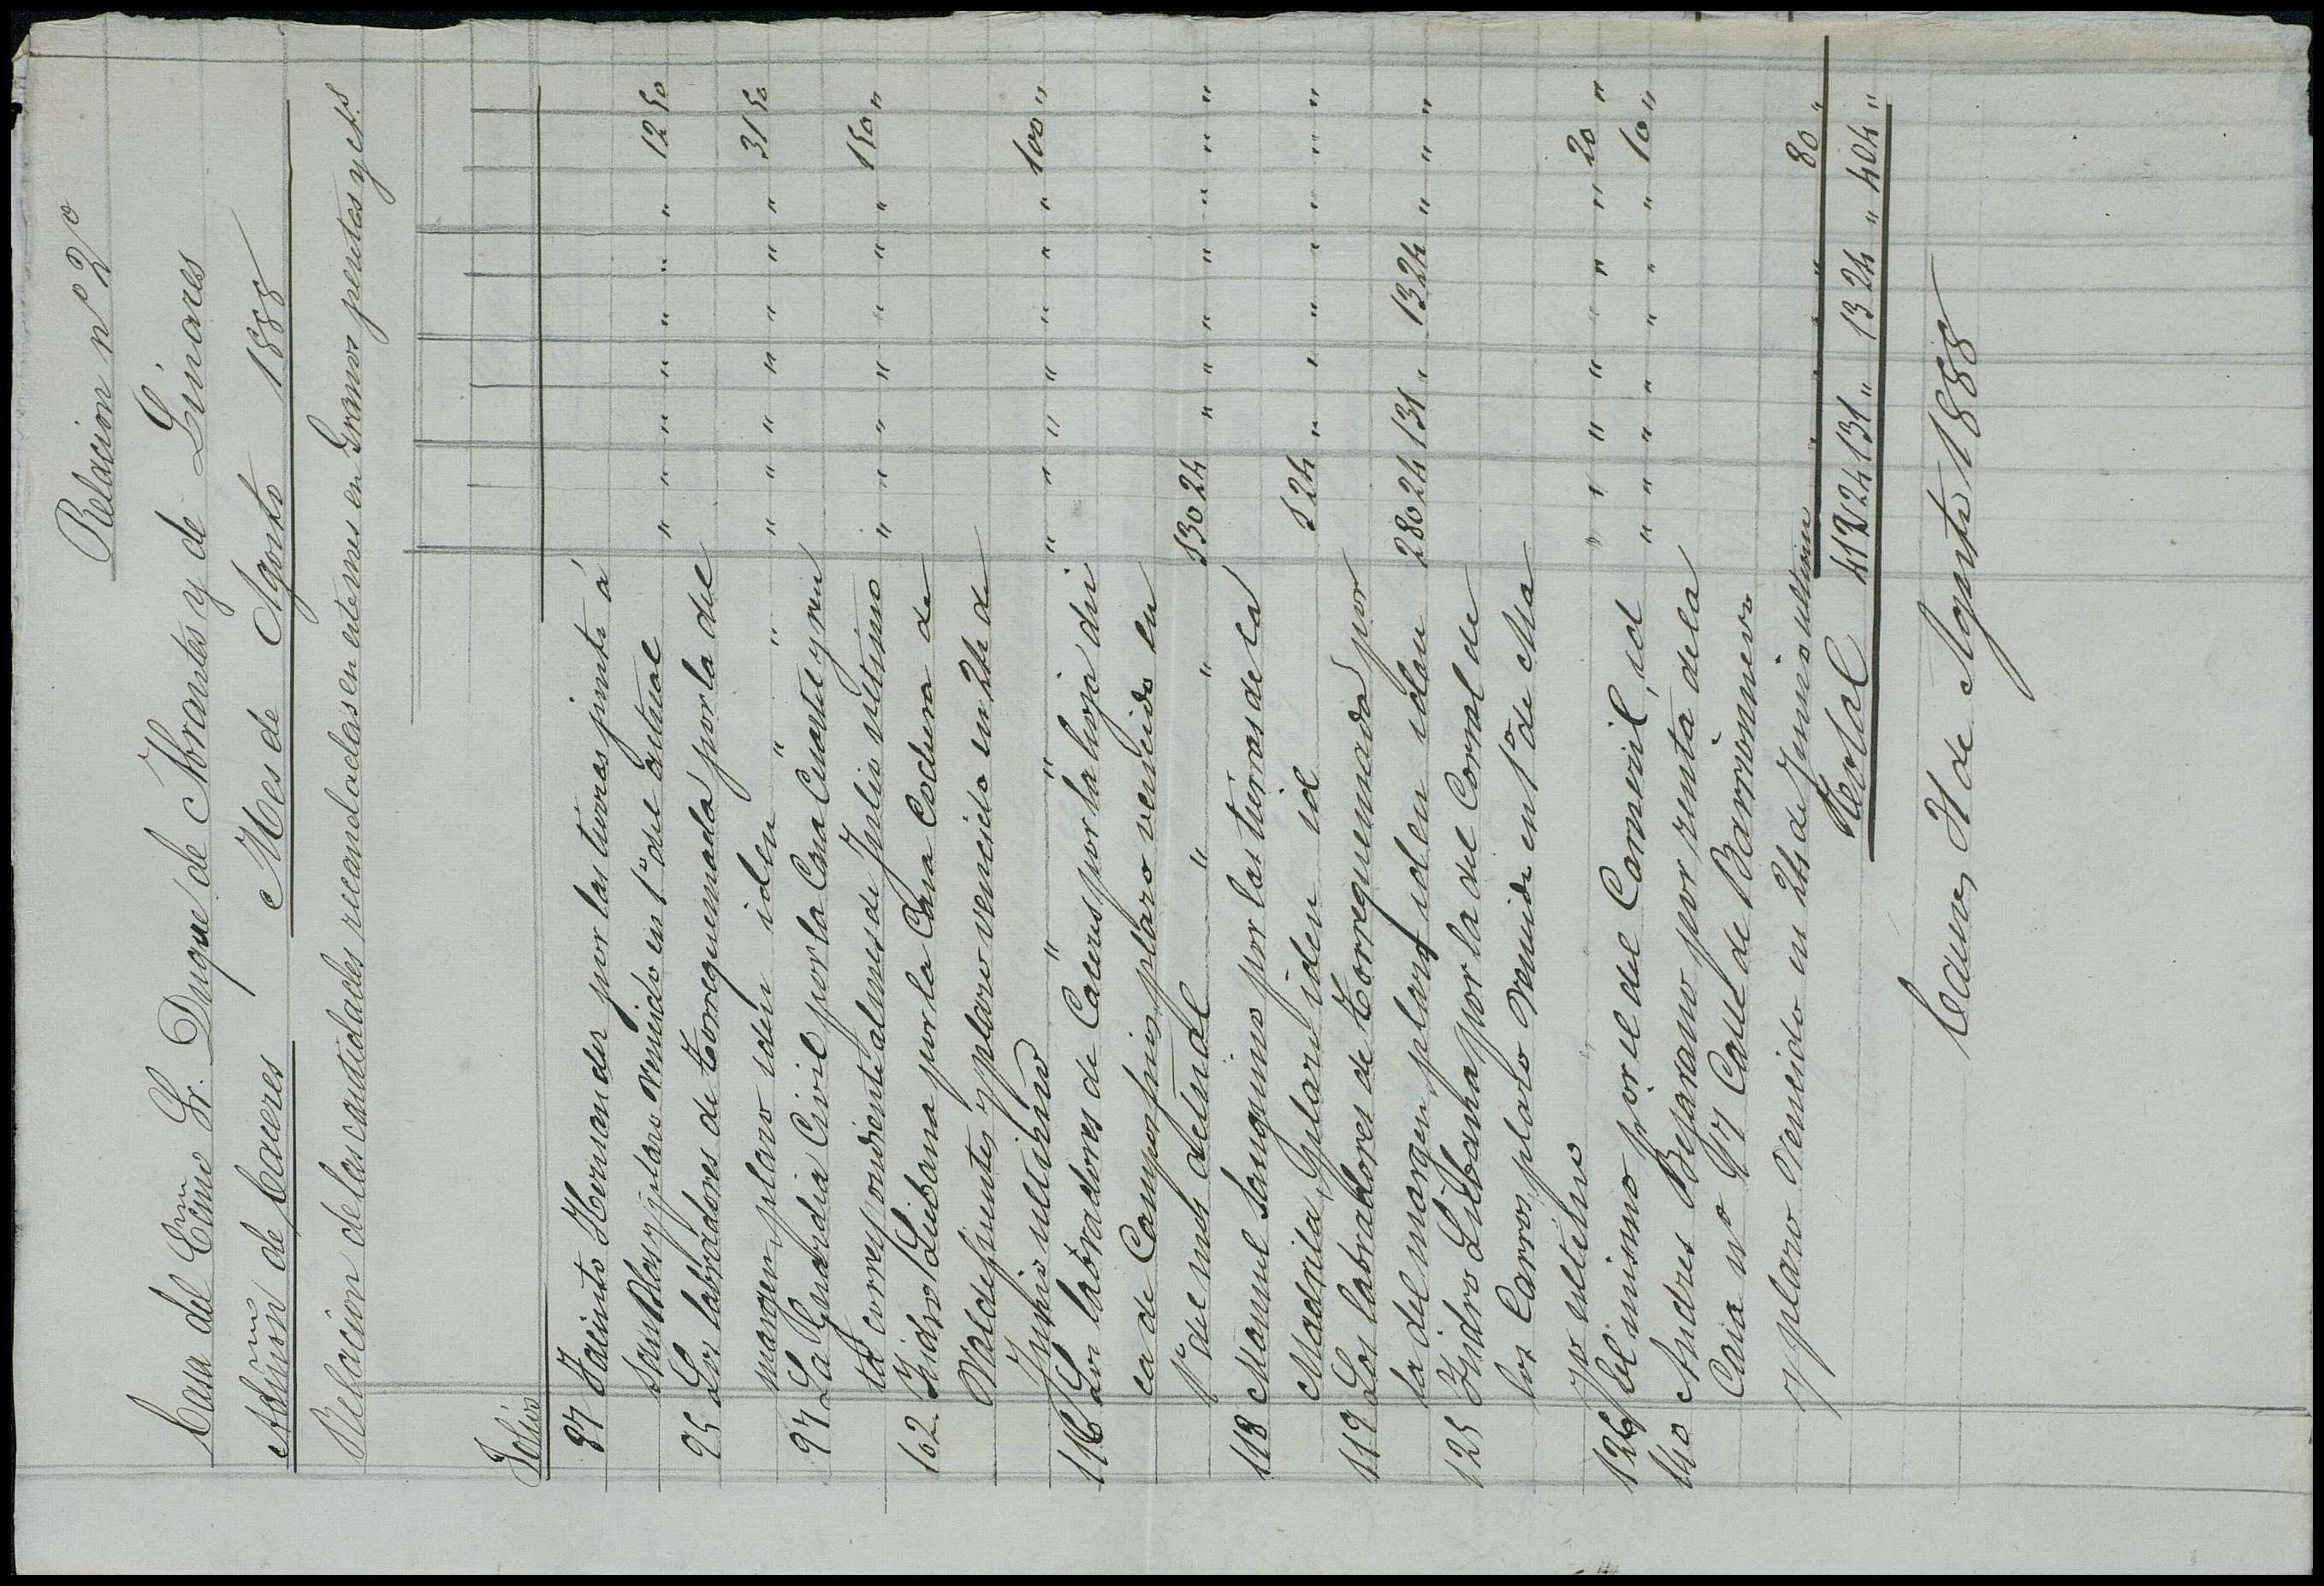 Relacion nº 2º
Casa del Ecmo Sr. Duque de Abrantes y de Linares
Admon de Caceres Mes de Agosto 1888
Relacion de las cantidades recaudadas en este mes en Granos pesetas y cts
Folios
87 Jacinto Hernandez por las tierras junto á
San Blas y plazo vencido en 1º del actual " " " " " " " 12 50
95 Los labradores de Torrequemada por la del
margen, plazo iden iden " " " " " " " " " 31 50
97 La Guardia Civil por la Casa Cuartel y ren
ta correspondiente al mes de Julio ultimo " " " " " " " 150 "
102 Isidro Liebana por la Casa Cochera de
Valdefuentes y plazo vencido en 24 de
Junio ultimo " " " " " " " " " 100 "
116 Los labradores de Caceres por la hoja de
ca de Camporfrio, plazo vencido en
1º del mes actual " " 130 24 " " " " " " "
118 Manuel Sanguino por las tierras de la
Madrila, plazo iden id 1 24 " " " " " " "
119 Los labradores de Torrequemada por
la del margen, plazo iden iden 280 24 131 " 13 24 " " "
125 Isidro Liebana por la del Corral de
los Carros, plazo vencido en 1º de Ma
yo ultimo " " " " " " " 20 "
126 El mismo por el del Cameril, id " " " " " " " 10 "
140 Andres Bejarano por renta de la
Casa nº 17 Calle de Barrionuevo
y plazo vencido en 24 de Junio ultimo " " " 80 "
Total 412 24 131 " 13 24 " 404 "
Caceres 31 de Agosto 1888